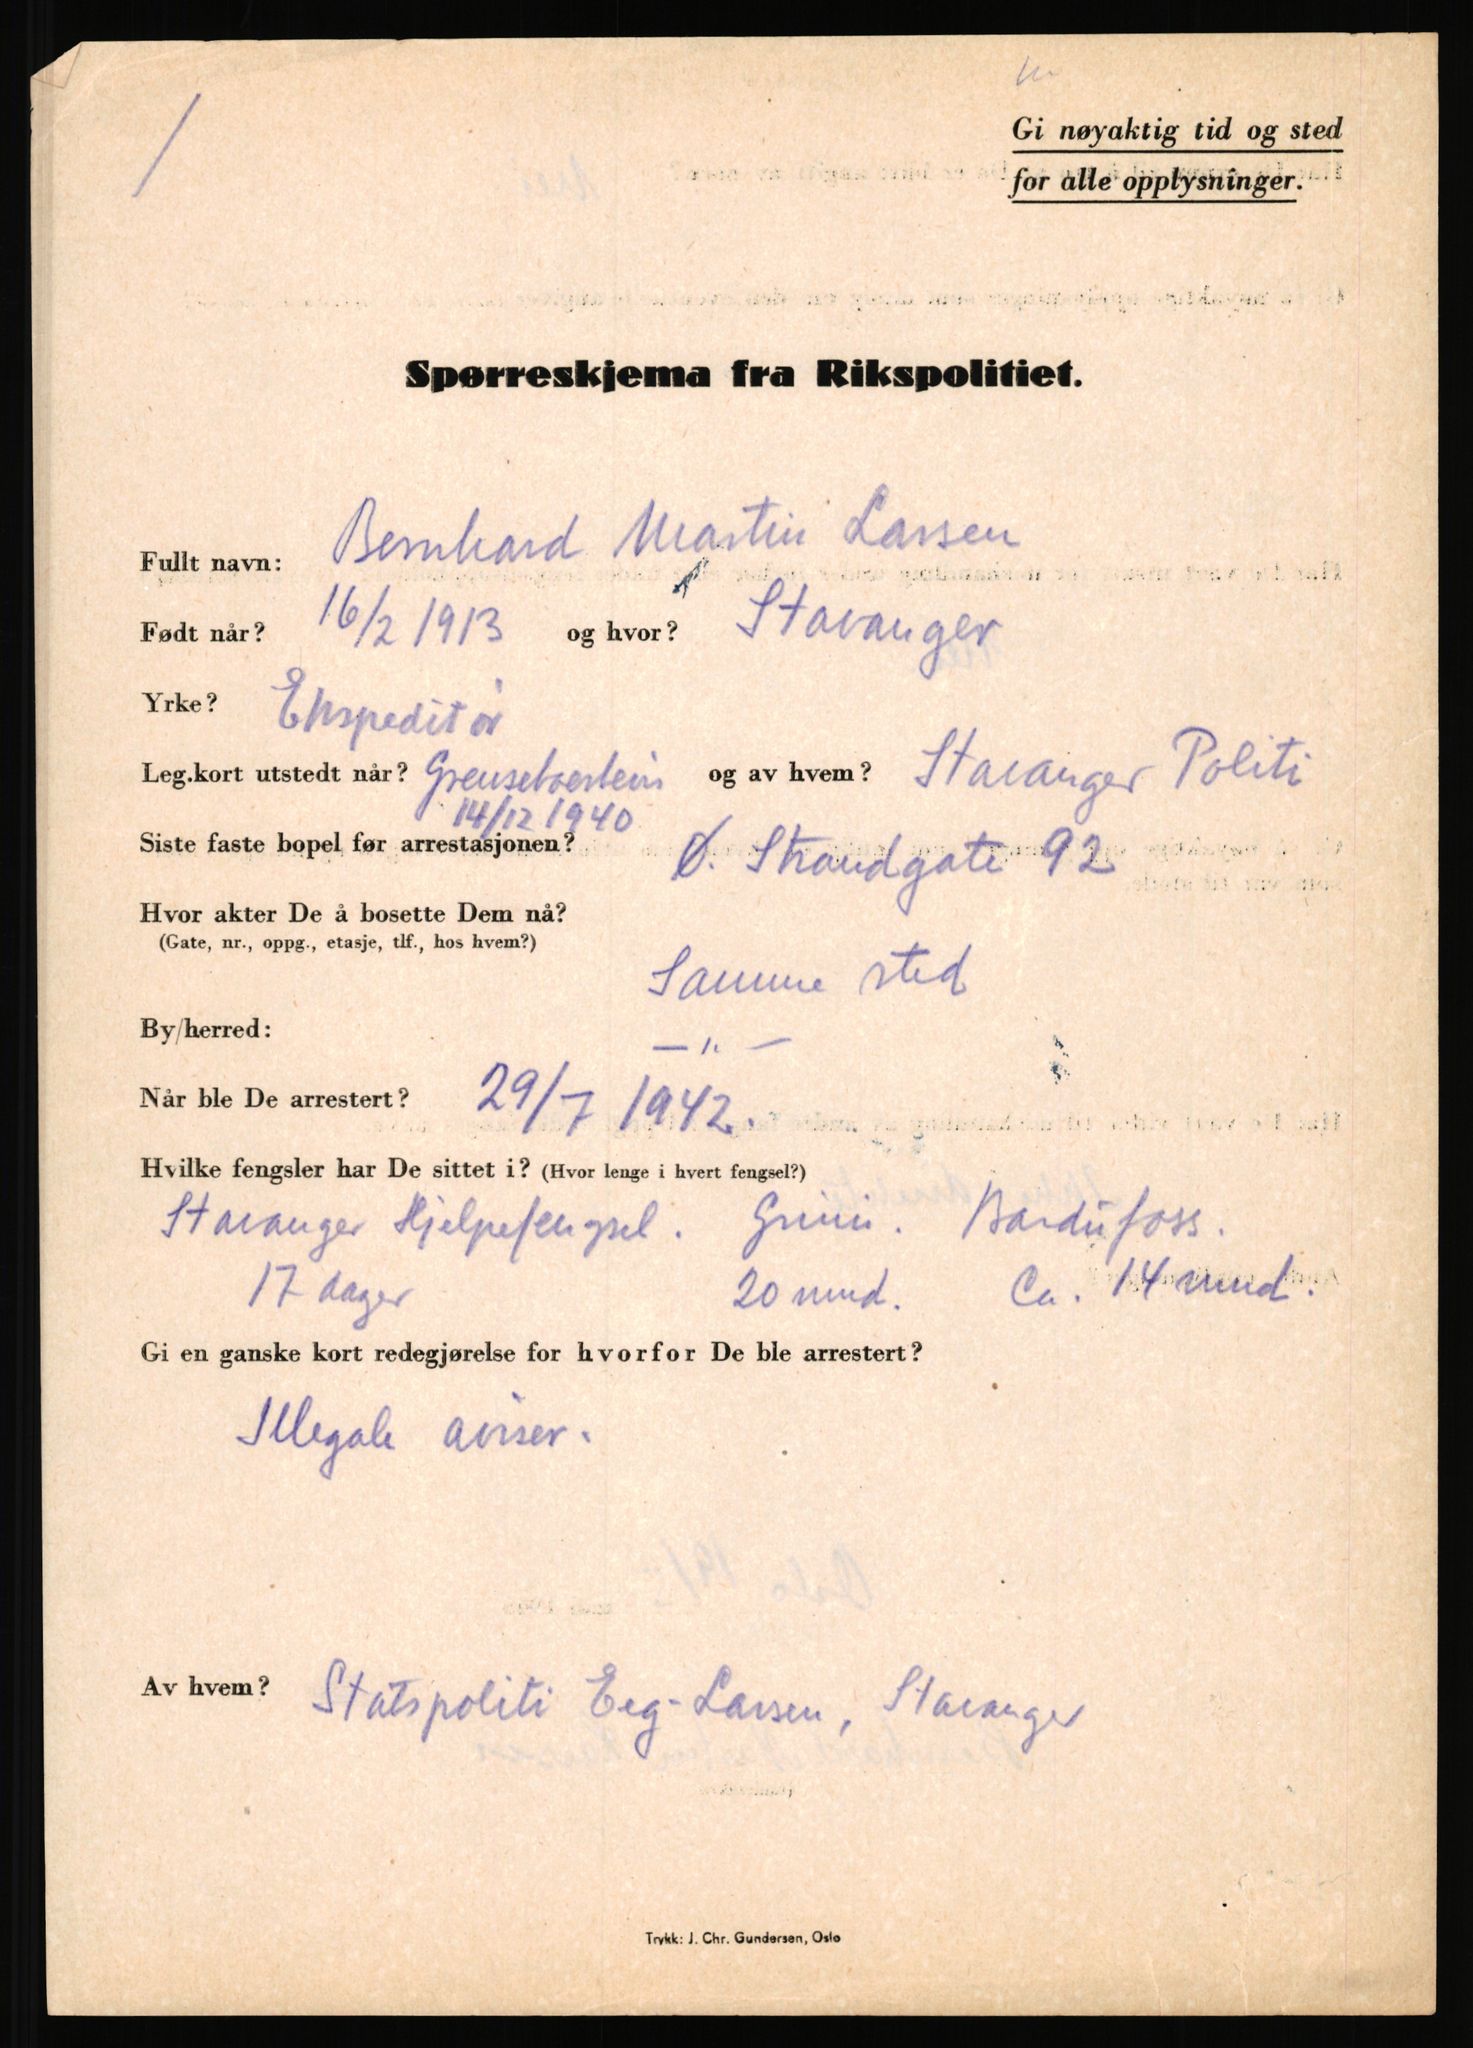 Gi nøyaktig tid og sted
for alle opplysninger.
Spørreskjema fra Rikspolitiet.
Fullt navn: Bernhard Martin Larsen
Født når? 16/2 1913 og hvor? Stavanger
Yrke? Ekspeditør
Leg.kort utstedt når? Grenseboerbevis og av hvem? Stavanger Politi
14/12 1940
Siste faste bopel før arrestasjonen? Ø. Strandgate 92
Hvor akter De å bosette Dem nå?
(Gate, nr., oppg., etasje, tlf., hos hvem?)
Samme sted
By/herred: — " —
Når ble De arrestert? 29/7 1942.
Hvilke fengsler har De sittet i? (Hvor lenge i hvert fengsel?)
Stavanger Hjelpefengsel. Grini. Bardufoss.
17 dager 20 mnd. Ca. 14 mnd.
Gi en ganske kort redegjørelse for hvorfor De ble arrestert?
Illegale aviser.
Av hvem? Statspoliti Eeg-Larsen, Stavanger
Trykk: J. Chr. Gundersen, Oslo